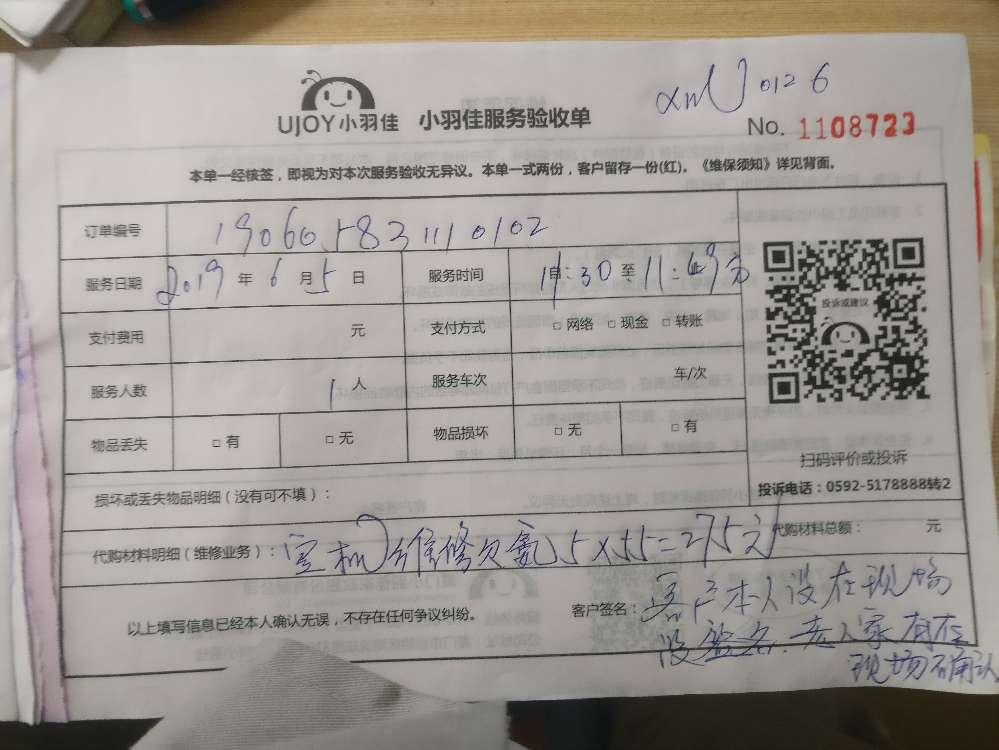 xmUJ0126
UJOY小羽佳 小羽佳服务验收单
No. 1108723
本单一经核签，即视为对本次服务验收无异议。本单一式两份，客户留存一份(红)。《维保须知》详见背面。
订单编号
服务日期 2019 年 6 月 5 日 服务时间 11:30 至 11:49分
投诉或建议
支付费用 元 支付方式 □ 网络 □ 现金 □ 转账
服务人数 1 人 服务车次 车/次
物品丢失 □ 有 □ 无 物品损坏 □ 无 □ 有
扫码评价或投诉
损坏或丢失物品明细（没有可不填）：
投诉电话：0592-5178888转2
代购材料明细（维修业务）： 空机 维修 5×55=275元 代购材料总额： 元
以上填写信息已经本人确认无误，不存在任何争议纠纷。 客户签名： 客户本人没在现场
没签名、老人家有在
现场确认